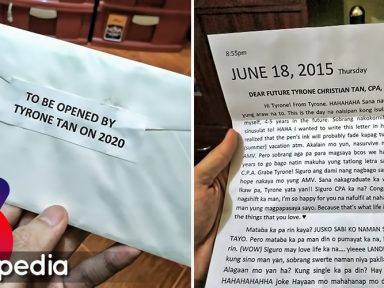 TO BE OPENED BY
TYRONE TAN ON 2020
pedia
8:55pm
JUNE 18, 2015 Thursday
DEAR FUTURE TYRONE CHRISTIAN TAN, CPA,
Hi Tyrone! From Tyrone. HAHAHAHA Sana
yung araw na to. This is the day na naisipan kong isul
myself, 4-5 years in the future. Sobrang nakakorni
sinusulat to! HAHA I wanted to write this letter in h
realized that the pen's ink will probably fade kapag tu
(summer) vacation atm. Akalain mo yun, nasurvive m
AMV. Pero sobrang aga pa para magsaya bcos we ha
years to go bago natin makuha yung tatlong letra sa
C.P.A. Grabe Tyrone! Siguro ang dami nang nagbago sa
hope nakayo mo yung AMV. Sana nakagraduate ka w
Ikaw pa, Tyrone yata yan!! Siguro CPA ka na? Cong
nagshift ka man, I'm so happy for you na nafulfil at nahan
man yung magpapasaya sayo. Because that's what life i
the things that you love. ♥
Mataba ka pa rin kaya? JUSKO SABI KO NAMAN S
TAYO. Pero mataba ka pa man din o pumayat ka na,
rin. (WOW) Siguro may love life ka na... yieeee LAND
kung sino man yan, sobrang swerte naman niya pakila
Alagaan mo yan ha? Kung single ka pa din
HAHAHAHAHHA joke Hayaan mo mahahanap mo di